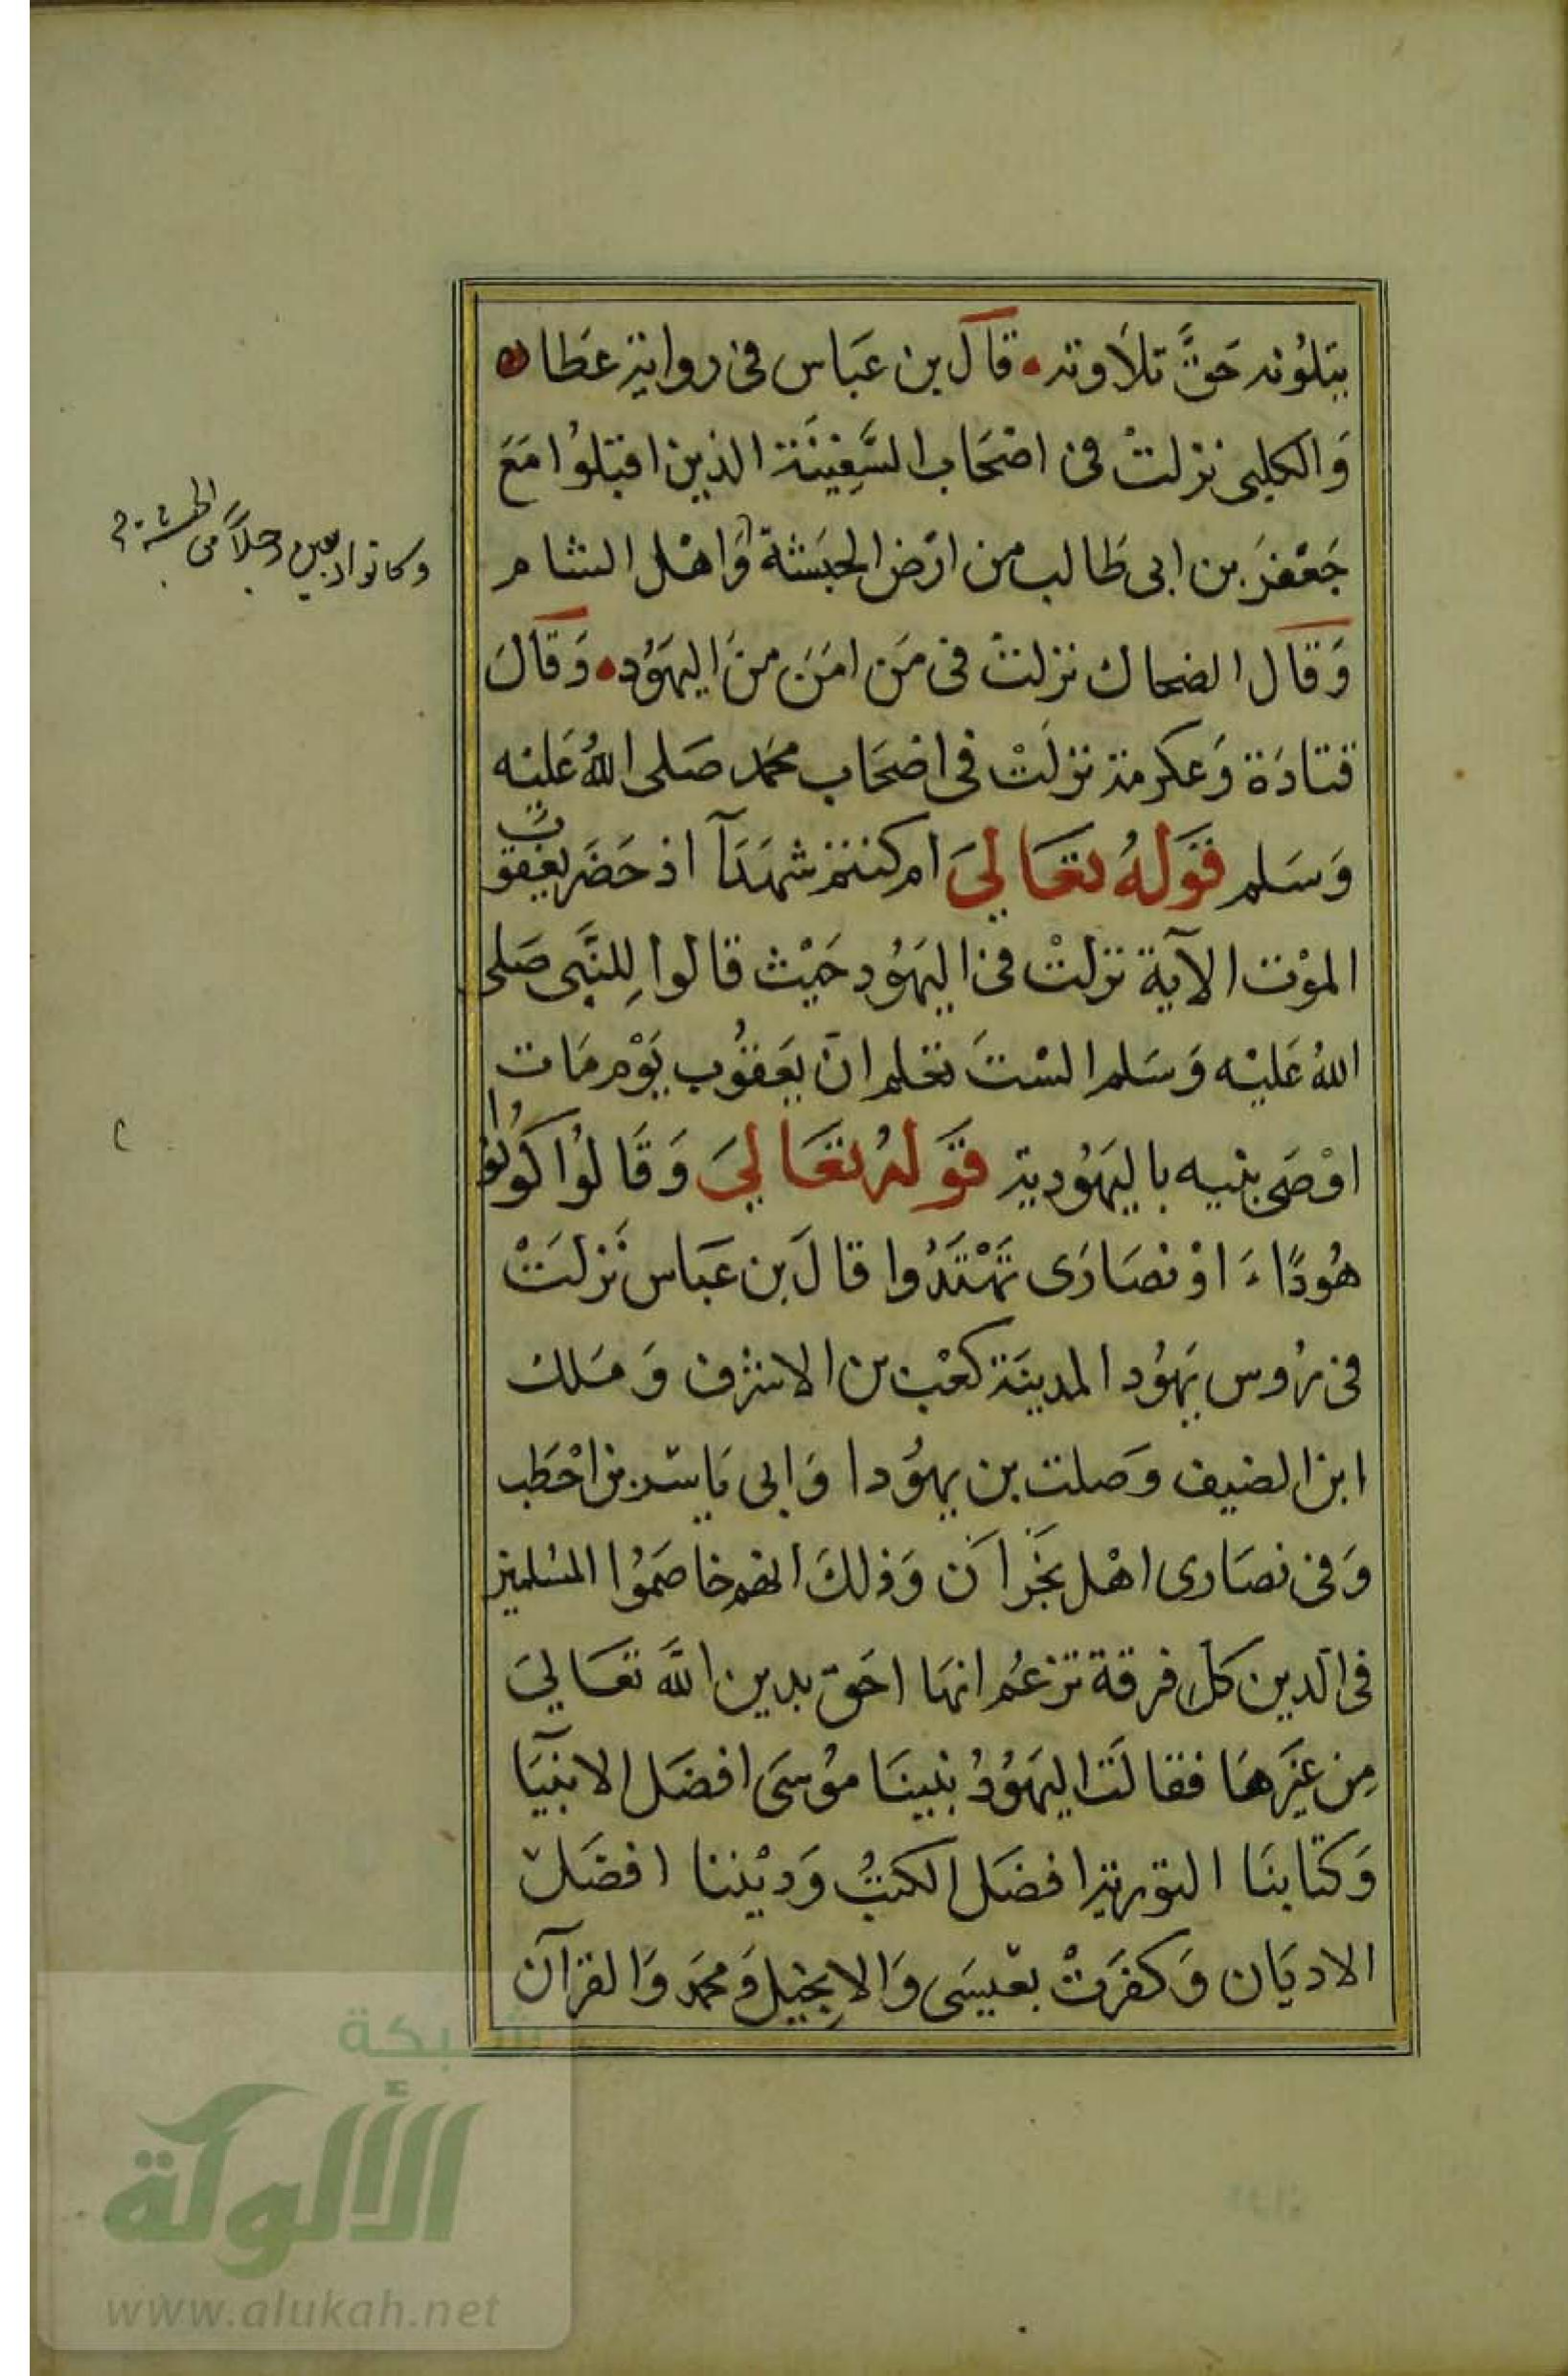 يتلونه حَقَّ تلاوته قال بن عَبَاس فى رواية عَطا
وَالكلبى نزلتْ فى اصْحَاب السَّفِينَة الذين اقبلوُا مَعَ
جَعْفرَ بن ابى طَالب من ارْض الحبَشة وَاهْل الشام
وكانوا اربعين رجلاً من الحبشة
وَقال الضحاك نزلتْ فى مَن امَنَ منَ اليهَوُد وَقالَ
قتادَة وَعكرمة نزلَتْ فى اصْحَاب محمَد صَلى اللهُ عَليْه
وَسَلم قَولهُ تعَالىَ ام كنتم شهَدَآ اذ حَضَر يعقوب
الموْت الآية نزلتْ فى اليهَوُد حَيْث قالوا لِلنَّبى صَلى
اللهُ عَليْه وَسَلم السْتَ تعْلم انَ يعَقوُب يَوْم مَات
اوْصَى بنيه باليهَوُدية قَولهُ تعَالىَ وَقَالوُا كوُنوُا
هُودًاءَ اوْ نصَارَى تَهْتَدُوا قالَ بن عَبَاس نَزلَتْ
فى رُوس يهَوُد المدينَة كعْب بن الاشرف وَمَلك
ابن الضيف وَصلت بن يهوُدا وَابى يَاسر بن احْطَب
وَفى نصَارى اهْل نَجْرانَ وَذلكَ انهم خاصَموُا المسْلمين
فى الدين كل فرقة تزعُم انهَا احَق بدين اللَّه تعَالىَ
مِن غيَرهَا فقالَت اليهَوُدُ نبينَا موُسَى افضَل الانبيَآ
وَكتَابنَا التورية افضَل الكتبُ وَديْننا افضَل
الاديَان وَكفرَتْ بعيسَى وَالاِنجيل وَمحمَد وَالقرآن
شبكة
الألوكة
www.alukah.net